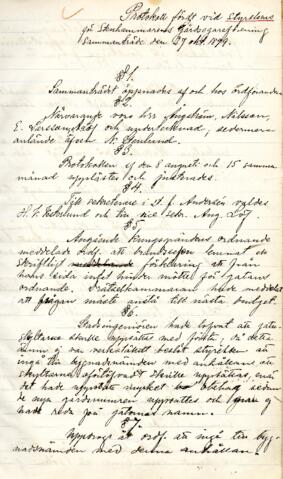 Protokoll fördt vid Styrelsens
för Stenhammarens Gårdsegareförening
Sammanträde den 27 okt. 1894.
§1.
Sammanträdet öppnades af och hos ordföranden
§2.
Närvarande voro hrr Ångström, Nilsson,
E. Larsson och undertecknad, sedermera
anlände äfven N. Stenlund.
§3.
Protokollen af den 8 augusti och 15 samma
månad upplästes och justerades.
§4.
Till sekreterare i st. f. Andersén valdes
H. V. Westerlund och till vice sekr. Aug. Löf.
§5.
Angående kungsgrändens ordnande
meddelade ordf. att brandchefen lemnat en
skriftlig förklaring att från
hans sida intet hinder möter för gatans
ordnande. Drätselkammaren hade meddelat
att frågan måste anstå till nästa budget.
§6.
Stadsingeniören hade lofvat att gatu-
skyltarne skulle uppsättas med första; då detta
ännu ej var verkstäldt beslöt styrelsen att
ingå till byggnadsnämnden med anhållan att
skyltarne oförtöfvadt skulle uppsättas, enär
det hade uppstått mycket obehag sedan
de nya gårdsnumren uppsattes och man ej
hade reda på gatornas namn.
§7.
Uppdrogs åt ordf. att ingå till byg-
nadsnämnden med denna anhållan.